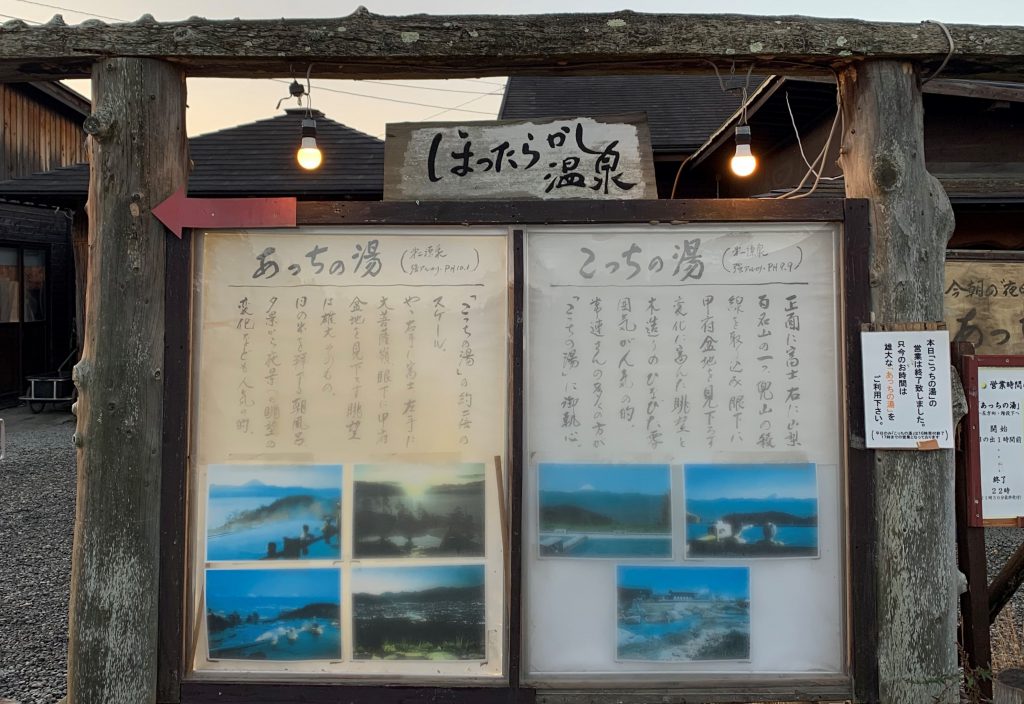 ほったらかし
温泉
あっちの湯
(第二源泉
強アルカリ・PH10.1)
「こっちの湯」の約二倍の
スケール。
やゝ右手に富士 左手に
大菩薩嶺 眼下に甲府
盆地を見下ろす眺望
は雄大そのもの。
日の出を拝する朝風呂
夕景から夜景への眺望の
変化なども人気の的。
こっちの湯
(第一源泉
強アルカリ・PH9.9)
正面に富士 右に山梨
百名山の一つ 兜山の稜
線を取り込み 眼下に
甲府盆地を見下ろす
変化に富んだ眺望と
木造りのひなびた雰
囲気が人気の的。
常連さんの多くの方が
「こっちの湯」に御執心。
本日「こっちの湯」の
営業は終了致しました。
只今のお時間は
雄大な「あっちの湯」を
ご利用下さい。
今朝の
あっ
営業時間
「あっちの湯」
開始
日の出1時間前
終了
22時